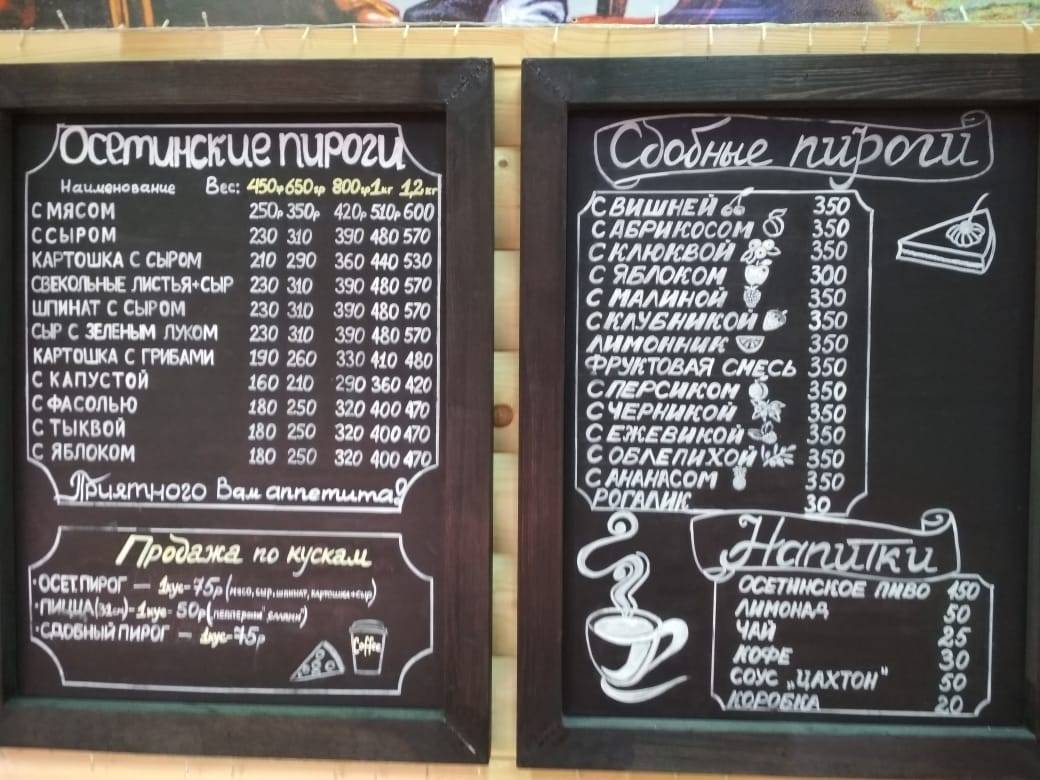 Осетинские пироги
Наименование Вес: 450г 650гр 800гр 1кг 1,2кг
С МЯСОМ 250р 350р 420р 510р 600
С СЫРОМ 230 310 390 480 570
КАРТОШКА С СЫРОМ 210 290 360 440 530
СВЕКОЛЬНЫЕ ЛИСТЬЯ+СЫР 230 310 390 480 570
ШПИНАТ С СЫРОМ 230 310 390 480 570
СЫР С ЗЕЛЕНЫМ ЛУКОМ 230 310 390 480 570
КАРТОШКА С ГРИБАМИ 190 260 330 410 480
С КАПУСТОЙ 160 210 290 360 420
С ФАСОЛЬЮ 180 250 320 400 470
С ТЫКВОЙ 180 250 320 400 470
С ЯБЛОКОМ 180 250 320 400 470
Приятного Вам аппетита!
Продажа по кускам
·ОСЕТ.ПИРОГ — 1кус=75р (мясо, сыр, шпинат, картошка+сыр)
·ПИЦЦА(31см)=1кус= 50р
·СДОБНЫЙ ПИРОГ — 1кус=75р
Coffee
Сдобные пироги
С ВИШНЕЙ 350
С АБРИКОСОМ 350
С КЛЮКВОЙ 350
С ЯБЛОКОМ 300
С МАЛИНОЙ 350
С КЛУБНИКОЙ 350
ЛИМОННИК 350
ФРУКТОВАЯ СМЕСЬ 350
С ПЕРСИКОМ 350
С ЧЕРНИКОЙ 350
С ЕЖЕВИКОЙ 350
С ОБЛЕПИХОЙ 350
С АНАНАСОМ 350
РОГАЛИК 30
Напитки
ОСЕТИНСКОЕ ПИВО 150
ЛИМОНАД 50
ЧАЙ 25
КОФЕ 30
СОУС „ЦАХТОН" 50
КОРОБКА 20